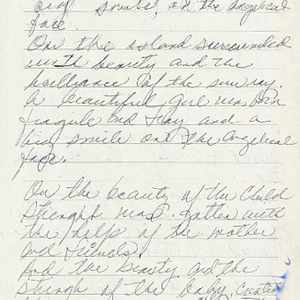 big smile, on the angelical
face.
On the island surrounded
with beauty and the
brilliance of the sun ray.
A beautiful girl was born
fragile and tiny and a
big smile on the angelical
face.
On the beauty of the child
strength was gotten with
the help of the mother
and friends.
And the beauty and the
strength of the baby, creation